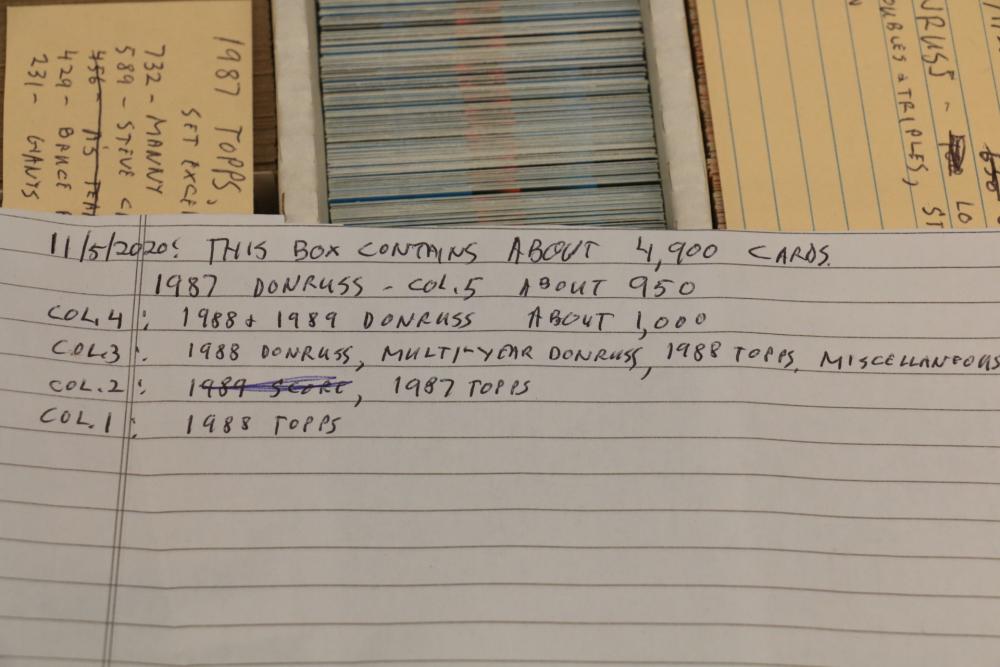 1987 TOPPS,
SET EXCE
732 - MANNY
589 - STEVE
456 - A'S TEA
429 - BANCE
231 - GIANTS
NRUSS -
LO
OUBLES & TRIPLES, ST
11/5/2020: THIS BOX CONTAINS ABOUT 4,900 CARDS.
1987 DONRUSS - COL.5 ABOUT 950
COL.4: 1988 & 1989 DONRUSS ABOUT 1,000
COL.3: 1988 DONRUSS, MULTI-YEAR DONRUSS, 1988 TOPPS, MISCELLANEOUS
COL.2: 1989 SCORE, 1987 TOPPS
COL.1: 1988 TOPPS